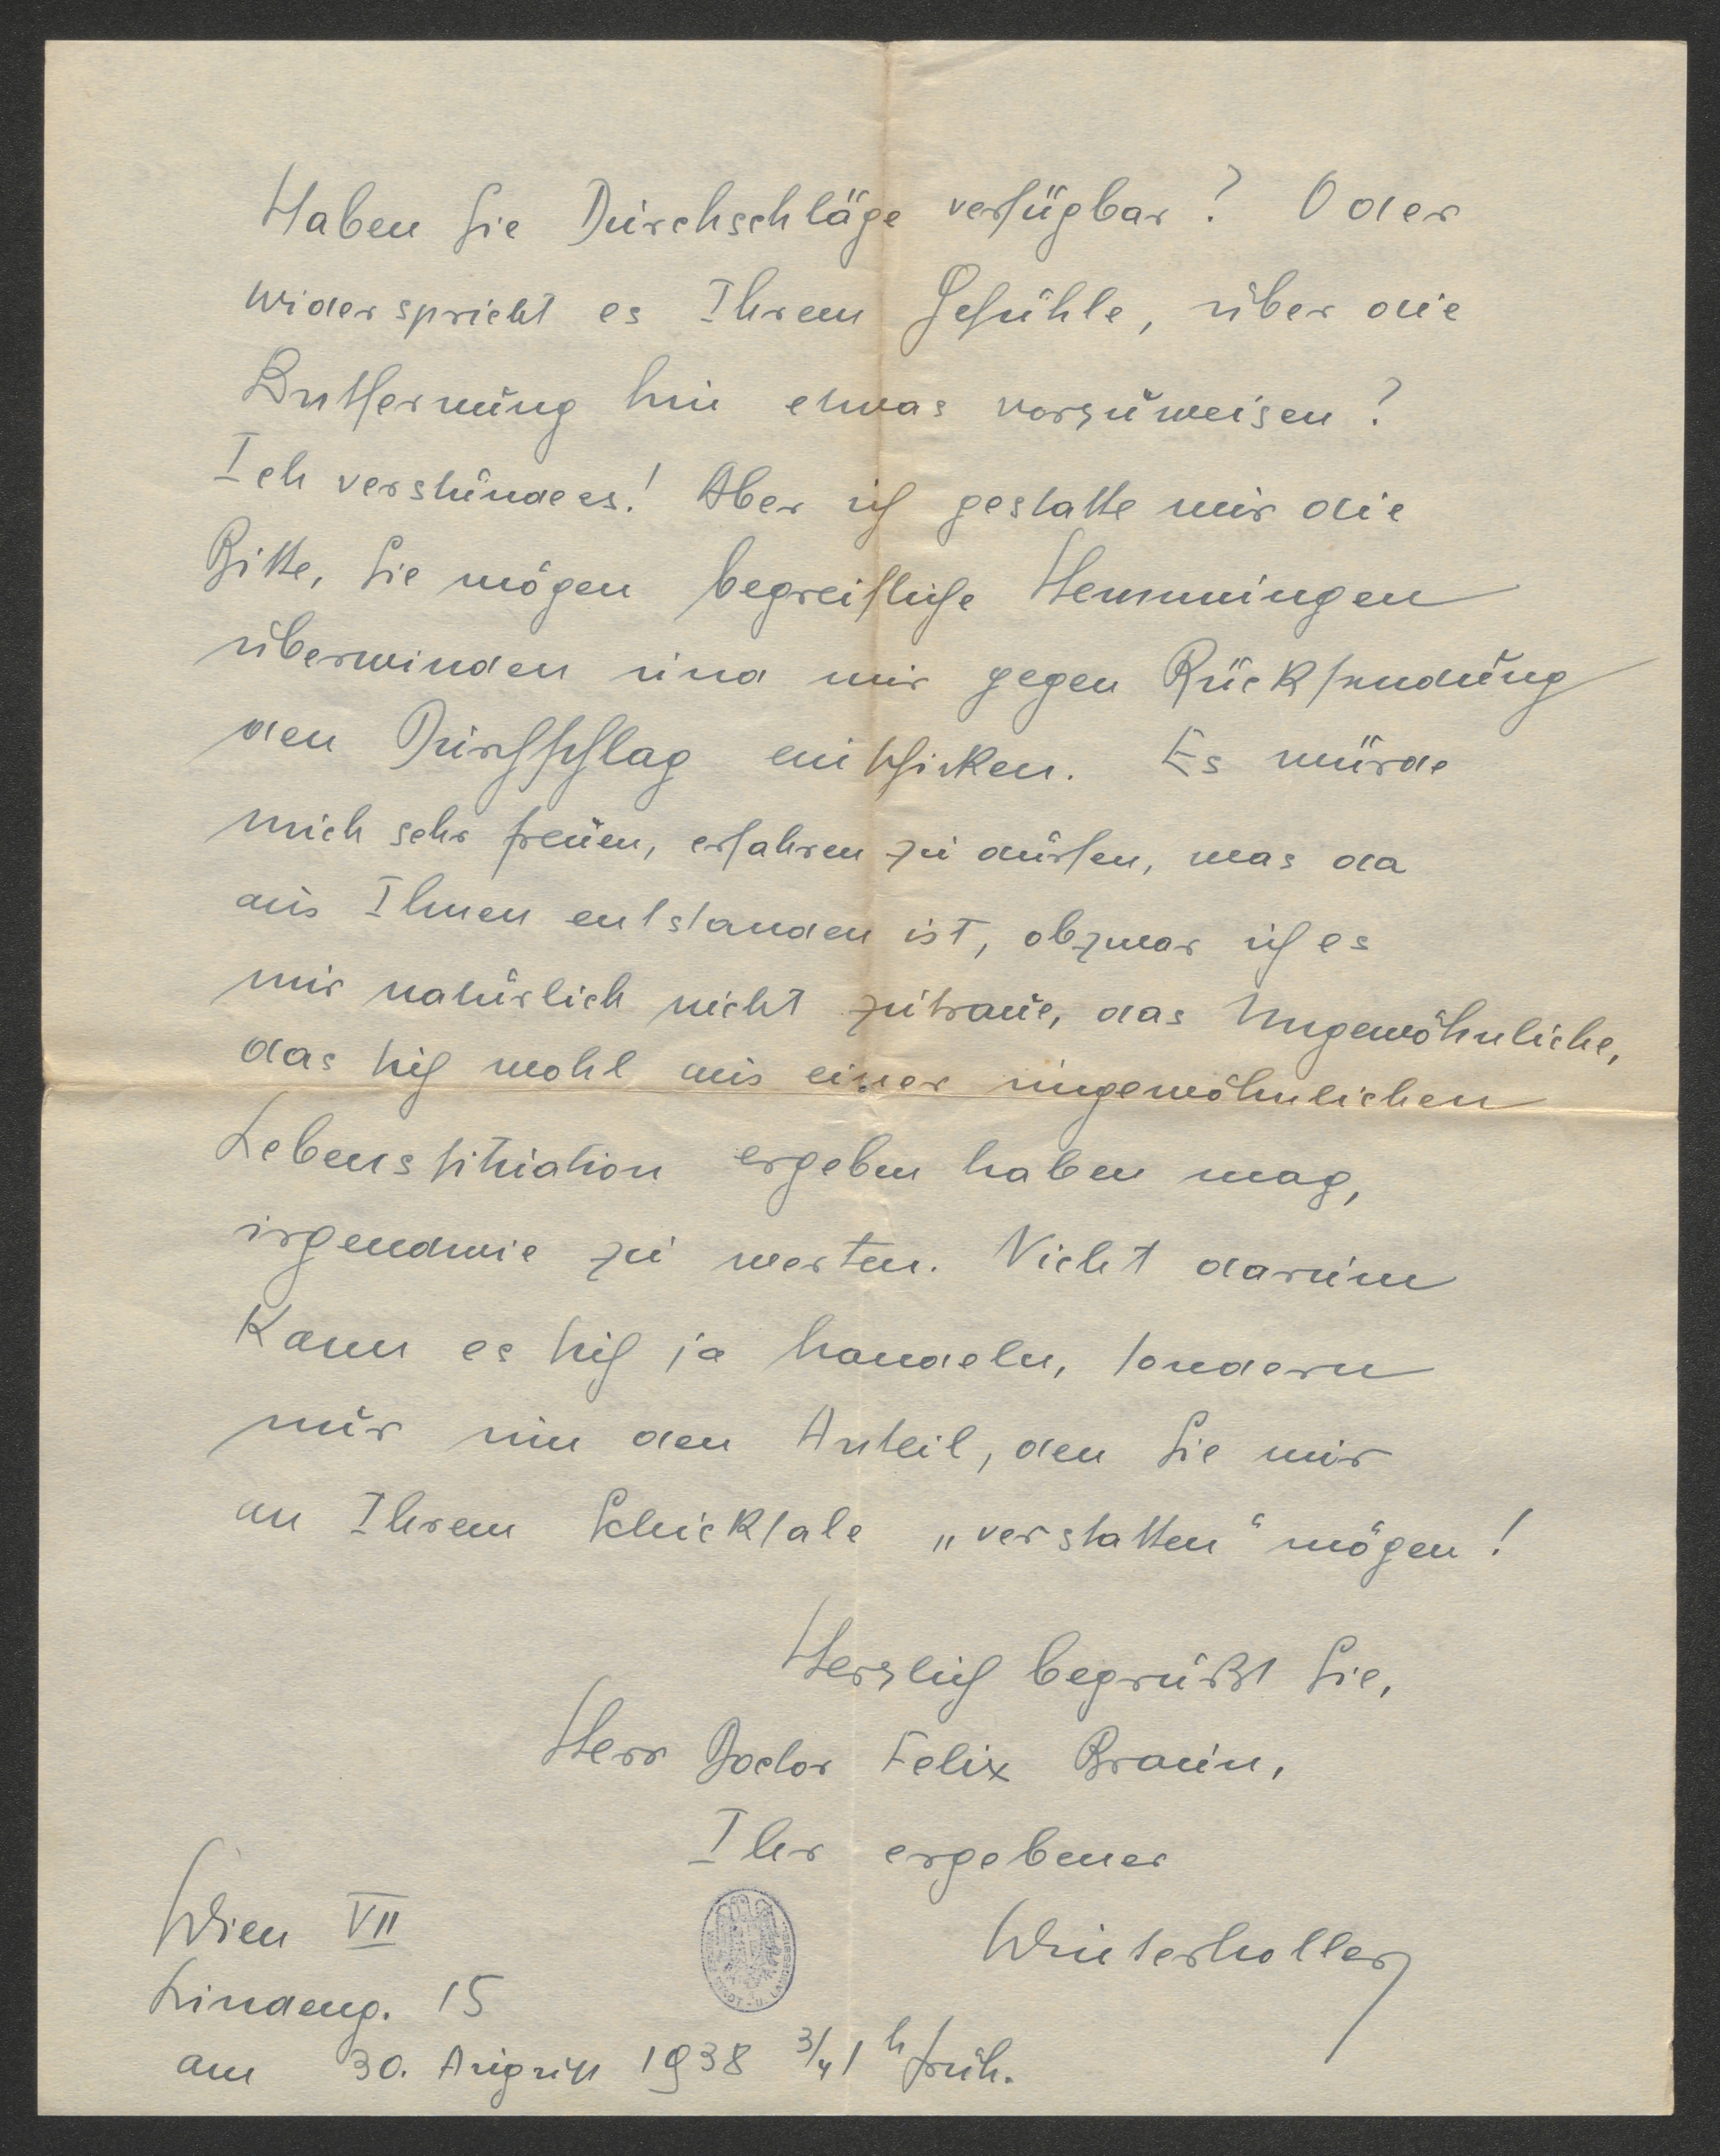 Haben Sie Durchschläge verfügbar? Oder
widerspricht es Ihrem Gefühle, über die
Entfernung hin etwas vorzuweisen?
Ich verstünde es! Aber ich gestatte mir die
Bitte, Sie mögen begreifliche Hemmungen
überwinden und mir gegen Rücksendung
den Durchschlag einschicken. Es würde
mich sehr freuen, erfahren zu dürfen, was da
aus Ihnen entstanden ist, obzwar ich es
mir natürlich nicht zutraue, das Ungewöhnliche,
das sich wohl aus einer ungewöhnlichen
Lebenssituation ergeben haben mag,
irgendwie zu werten. Nicht darum
kann es sich ja handeln, sondern
nur um den Anteil, den Sie mir
an Ihrem Schicksale „verstatten“ mögen!
Herzlich begrüßt Sie,
Herr Doctor Felix Braun,
Ihr ergebener
Winterholler
Wien VII
Lindeng. 15
am 30. August 1938 3/4 1 h früh.